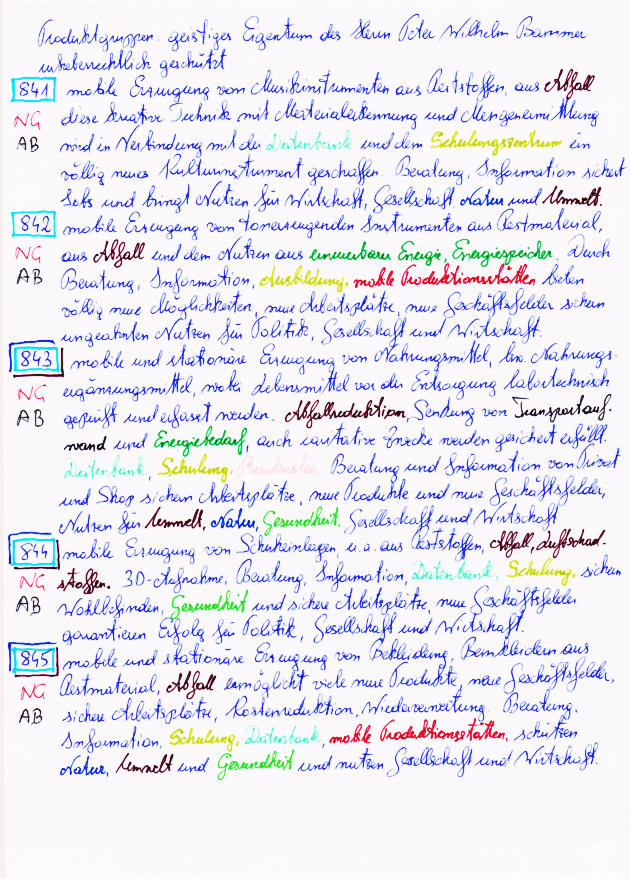 Produktgruppen: geistiges Eigentum des Herrn Peter Wilhelm Bammer
urheberrechtlich geschützt
841 mobile Erzeugung von Musikinstrumenten aus Reststoffen, aus Abfall
NG diese kreative Technik mit Materialerkennung und Mengenermittlung
AB wird in Verbindung mit der Datenbank und dem Schulungszentrum ein
völlig neues Kulturinstrument geschaffen. Beratung, Information sichert
Jobs und bringt Nutzen für Wirtschaft, Gesellschaft, Natur und Umwelt.
842 mobile Erzeugung von tonerzeugenden Instrumenten aus Restmaterial,
NG aus Abfall und dem Nutzen aus erneuerbarer Energie, Energiespeicher. Durch
AB Beratung, Information, Ausbildung, mobile Produktionsstätten bieten
völlig neue Möglichkeiten, neue Arbeitsplätze, neue Geschäftsfelder sichern
ungeahnten Nutzen für Politik, Gesellschaft und Wirtschaft.
843 mobile und stationäre Erzeugung von Nahrungsmittel, bzw. Nahrungs-
NG ergänzungsmittel, wobei Lebensmittel vor der Entsorgung labortechnisch
AB geprüft und erfasst werden. Abfallreduktion, Senkung von Transportauf-
wand und Energiebedarf, auch caritative Zwecke werden gesichert erfüllt.
Datenbank, Schulung, Beratung und Information von Privat
und Shop sichern Arbeitsplätze, neue Produkte und neue Geschäftsfelder,
Nutzen für Umwelt, Natur, Gesundheit, Gesellschaft und Wirtschaft
844 mobile Erzeugung von Schuheinlagen, u.a. aus Reststoffen, Abfall, Luftschad-
NG stoffen. 3D-Aufnahme, Beratung, Information, Datenbank, Schulung, sichern
AB Wohlbefinden, Gesundheit und sichere Arbeitsplätze, neue Geschäftsfelder
garantieren Erfolg für Politik, Gesellschaft und Wirtschaft.
845 mobile und stationäre Erzeugung von Bekleidung, Beinkleidern aus
NG Restmaterial, Abfall ermöglicht viele neue Produkte, neue Geschäftsfelder,
AB sichere Arbeitsplätze, Kostenreduktion, Wiederverwertung. Beratung,
Information, Schulung, Datenbank, mobile Produktionsstätten, schützen
Natur, Umwelt und Gesundheit und nutzen Gesellschaft und Wirtschaft.